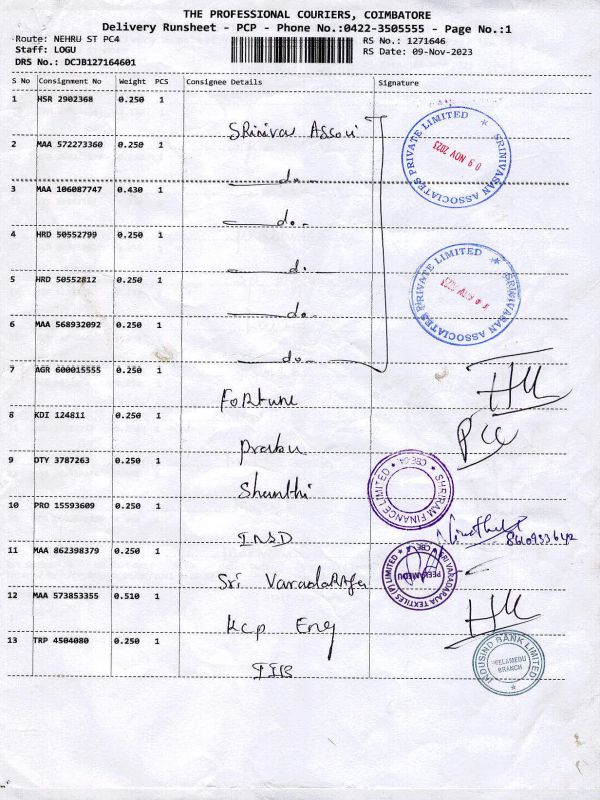 THE PROFESSIONAL COURIERS, COIMBATORE
Delivery Runsheet - PCP - Phone No.:0422-3505555 - Page No.:1
Route: NEHRU ST PC4
RS No.: 1271646
Staff: LOGU
RS Date: 09-Nov-2023
DRS No.: DCJB127164601
S No Consignment No Weight PCS Consignee Details Signature
1 HSR 2902368 0.250 1
Srinivas
2 MAA 572273360 0.250 1
do.
3 MAA 106087747 0.430 1
do.
4 HRD 50552799 0.250 1
do.
5 HRD 50552812 0.250 1
do.
6 MAA 568932092 0.250 1
do.
7 AGR 600015555 0.250 1
Fortune
8 KDI 124811 0.250 1
9 DTY 3787263 0.250 1
Shanthi
10 PRO 15593609 0.250 1
11 MAA 862398379 0.250 1
Sri VaradaRaja
12 MAA 573853355 0.510 1
Kcp Eng
13 TRP 4504080 0.250 1
SRINIVASAN ASSOCIATES PRIVATE LIMITED
09 NOV 2023
SRINIVASAN ASSOCIATES PRIVATE LIMITED
SHRIRAM FINANCE LIMITED
SRI VARADARAJA TEXTILES (P) LIMITED
PEELAMEDU
INDUSIND BANK LIMITED
PEELAMEDU
BRANCH